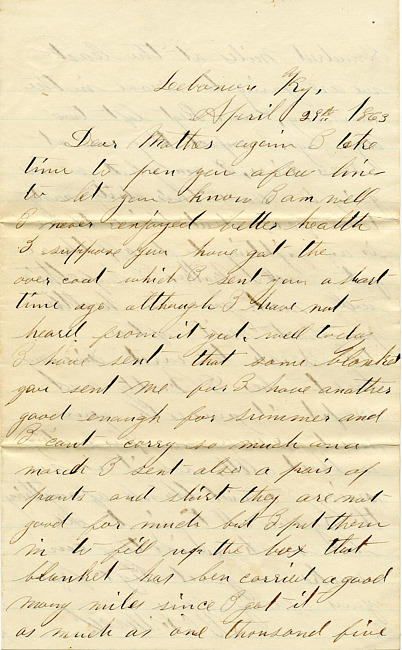 Lebanon Ky,
April 29th 1863
Dear Mother again I take
time to pen you a few line
to let you know I am well
I never enjoyed better health
I suppose you have got the
over coat which I sent you a short
time ago although I have not
heard from it yet. well today
I have sent that some blanket
you sent me for I have another
good enough for summer and
I cant carry so much on a
march I sent also a pair of
pants and shirt they are not
good for much but I put them
in to fill up the box that
blanket has ben carried a good
many miles since I got it
as much as one thousand five